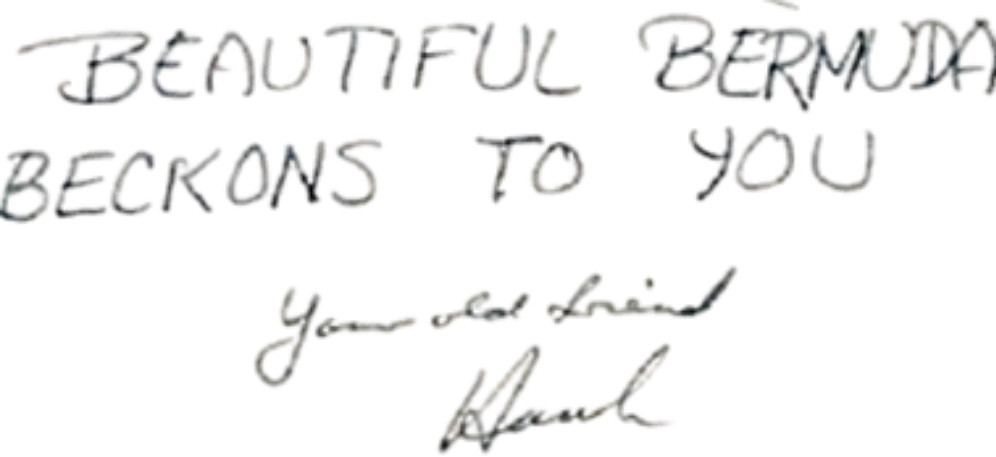 BEAUTIFUL BERMUDA
BECKONS TO YOU
Your old friend